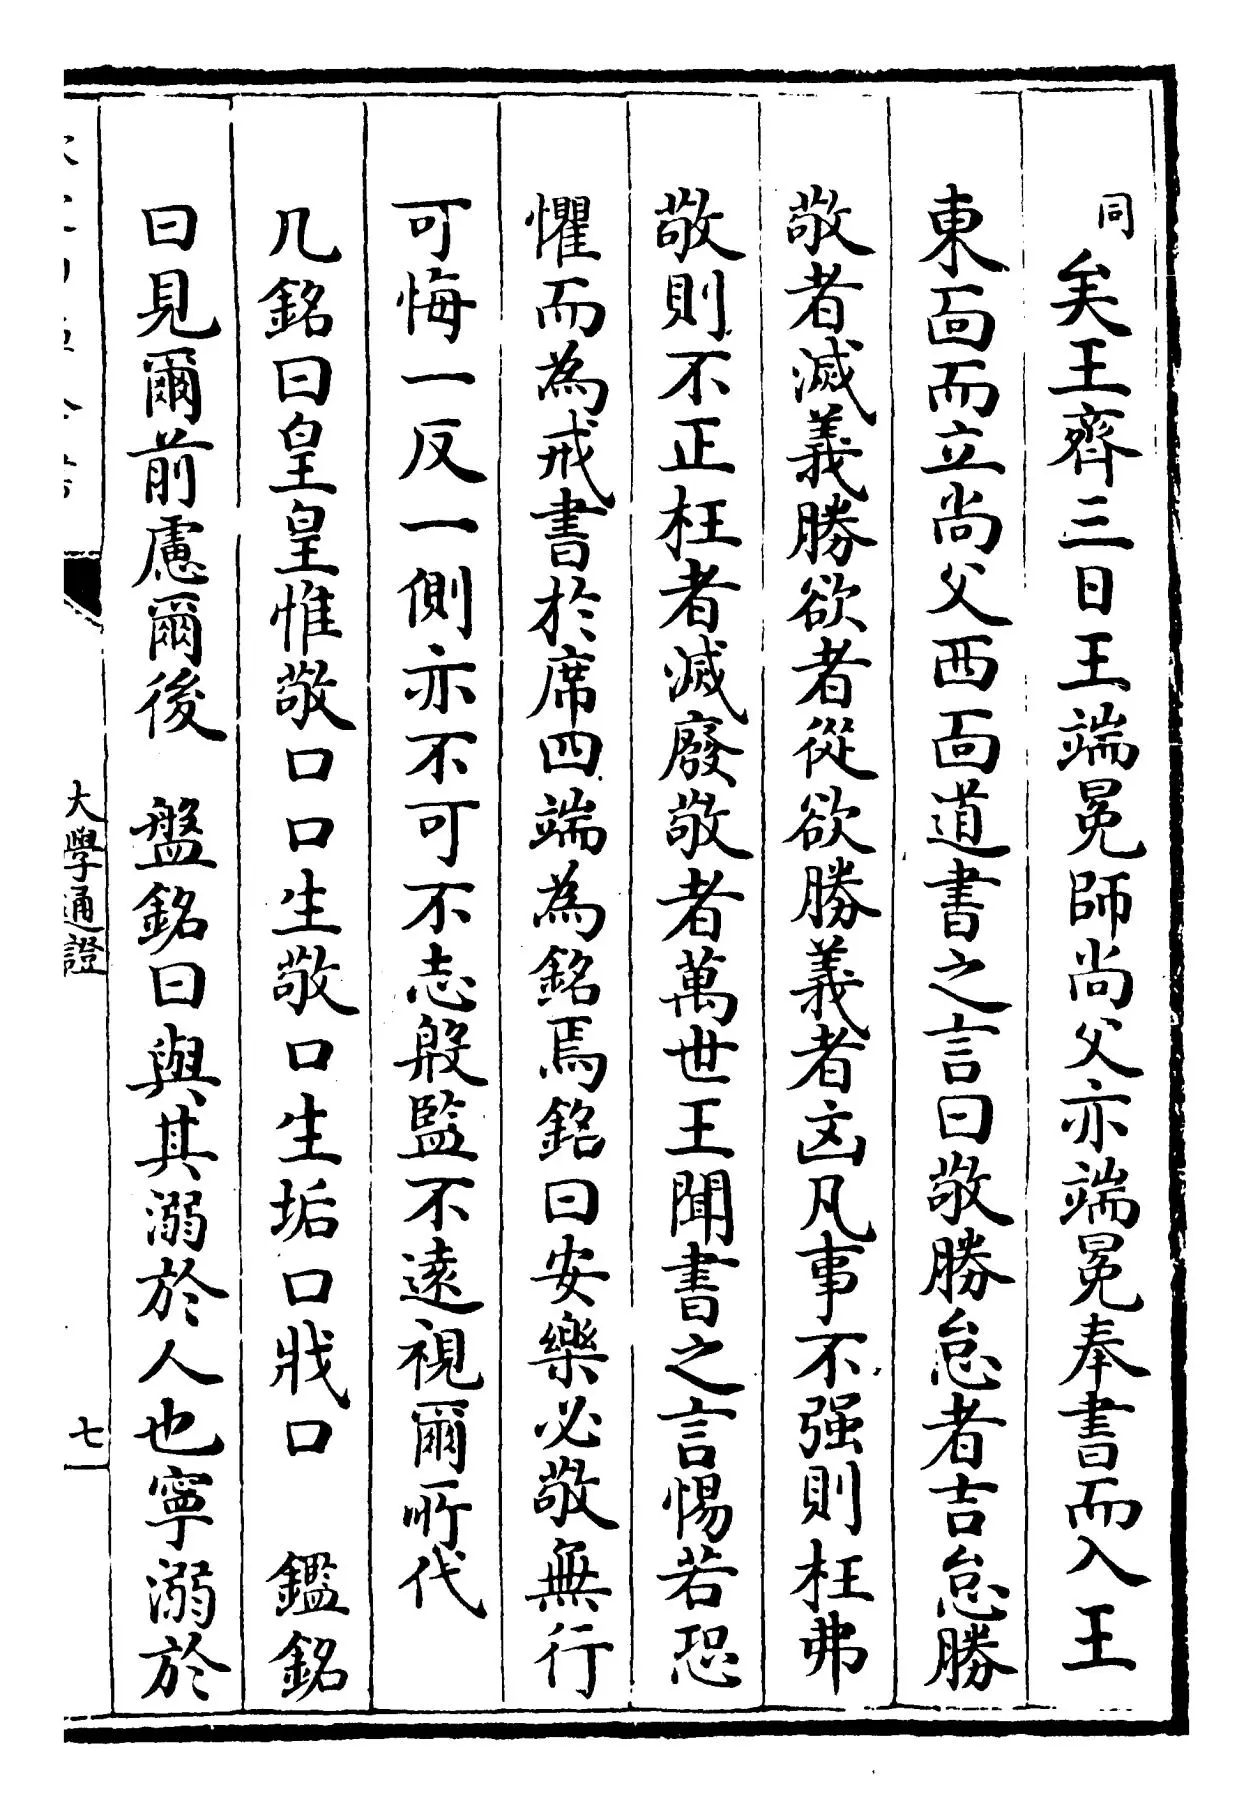 同矣王齊三日王端冕師尚父亦端冕奉書而入王
東靣而立尚父西靣道書之言曰敬勝怠者吉怠勝
敬者滅義勝欲者從欲勝義者凶凡事不强則枉弗
敬則不正枉者滅廢敬者萬世王聞書之言惕若恐
懼而為戒書於席四端為銘焉銘曰安樂必敬無行
可悔一反一側亦不可不志殷監不逺視爾所代
几銘曰皇皇惟敬口口生敬口生垢口戕口　鑑銘
曰見爾前慮爾後　盤銘曰與其溺於人也寧溺於
大學通證
七